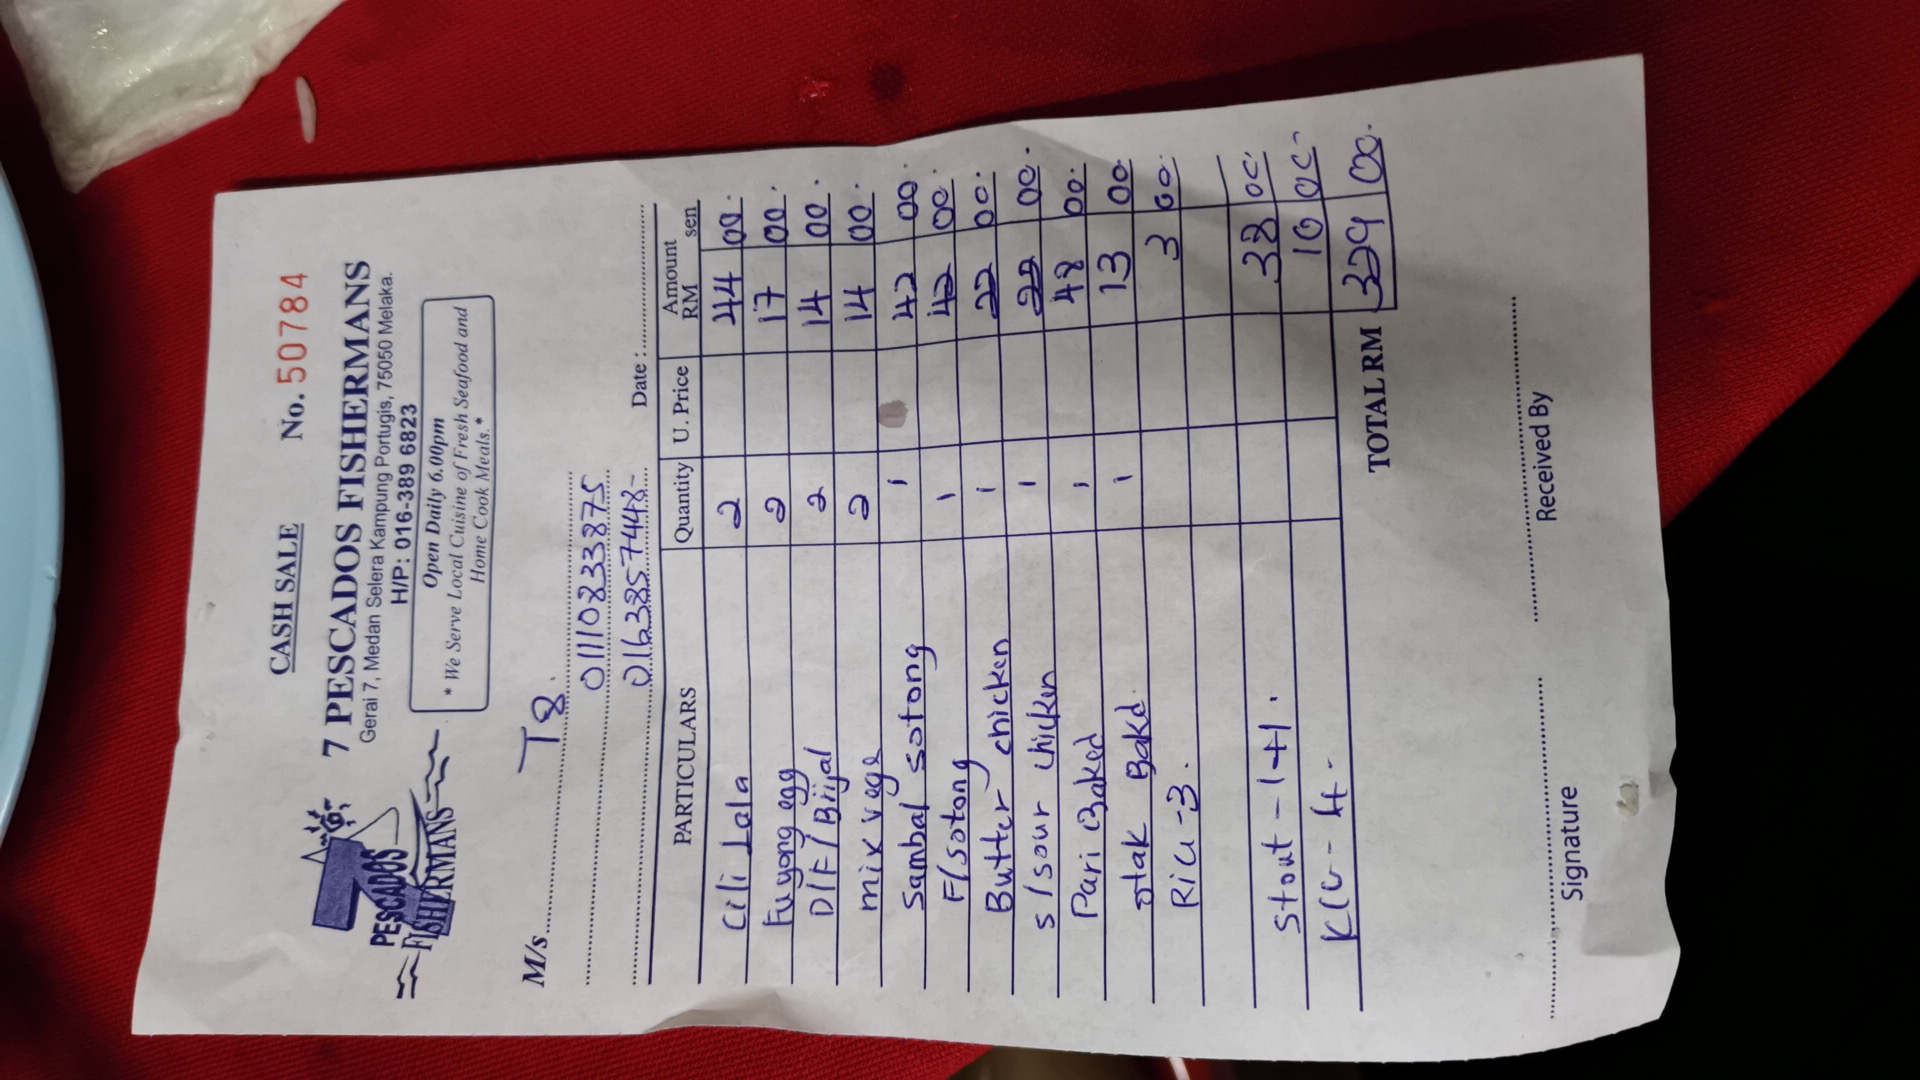 CASH SALE No. 50784
7 PESCADOS FISHERMANS
Gerai 7, Medan Selera Kampung Portugis, 75050 Melaka.
H/P: 016-389 6823
Open Daily 6.00pm
* We Serve Local Cuisine of Fresh Seafood and
Home Cook Meals.*
7
PESCADOS
FISHERMANS
M/s. T8.
01110833875
0163857448- Date :
PARTICULARS Quantity U. Price Amount RM sen
Cili Lala 2 44 00.
Fuyong egg 2 17 00.
D/F/Brijal 2 14 00.
mix vege 2 14 00
Sambal sotong 1 42 00.
F/sotong 1 42 00.
Butter chicken 1 22 00.
s/sour chicken 1 22 00.
Pari Baked 1 48 00.
otak Bakd. 1 13 00
Rice -3. 3 00.
Stout - 1+1. 38 00.
- 4. 10 00-
TOTAL RM 329 00.
Signature Received By